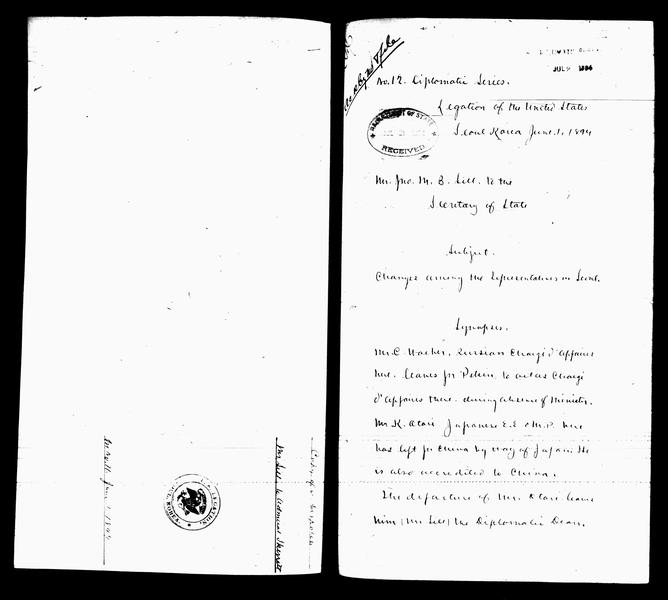 Mr Sill to Admiral Skerrett
Seoul June 1, 1894
U.S. LEGATION
SEOUL, KOREA.
No. 12. Diplomatic Series.
Legation of the United States
Seoul Korea June 1, 1894
DEPARTMENT OF STATE
RECEIVED
Mr. Jno. M. B. Sill. to the
Secretary of State
Subject.
Changes among the Representatives in Seoul.
Synopsis.
Mr C. Waeber, Russian Chargé d'Affaires
here. leaves for Pekin to act as Chargé
d'Affaires there. during absence of Minister.
Mr K. Otori Japanese E.E. & M.P. here
has left for China by way of Japan. He
is also accredited to China.
The departure of Mr. Otori leaves
him (Mr Sill) the Diplomatic Dean.